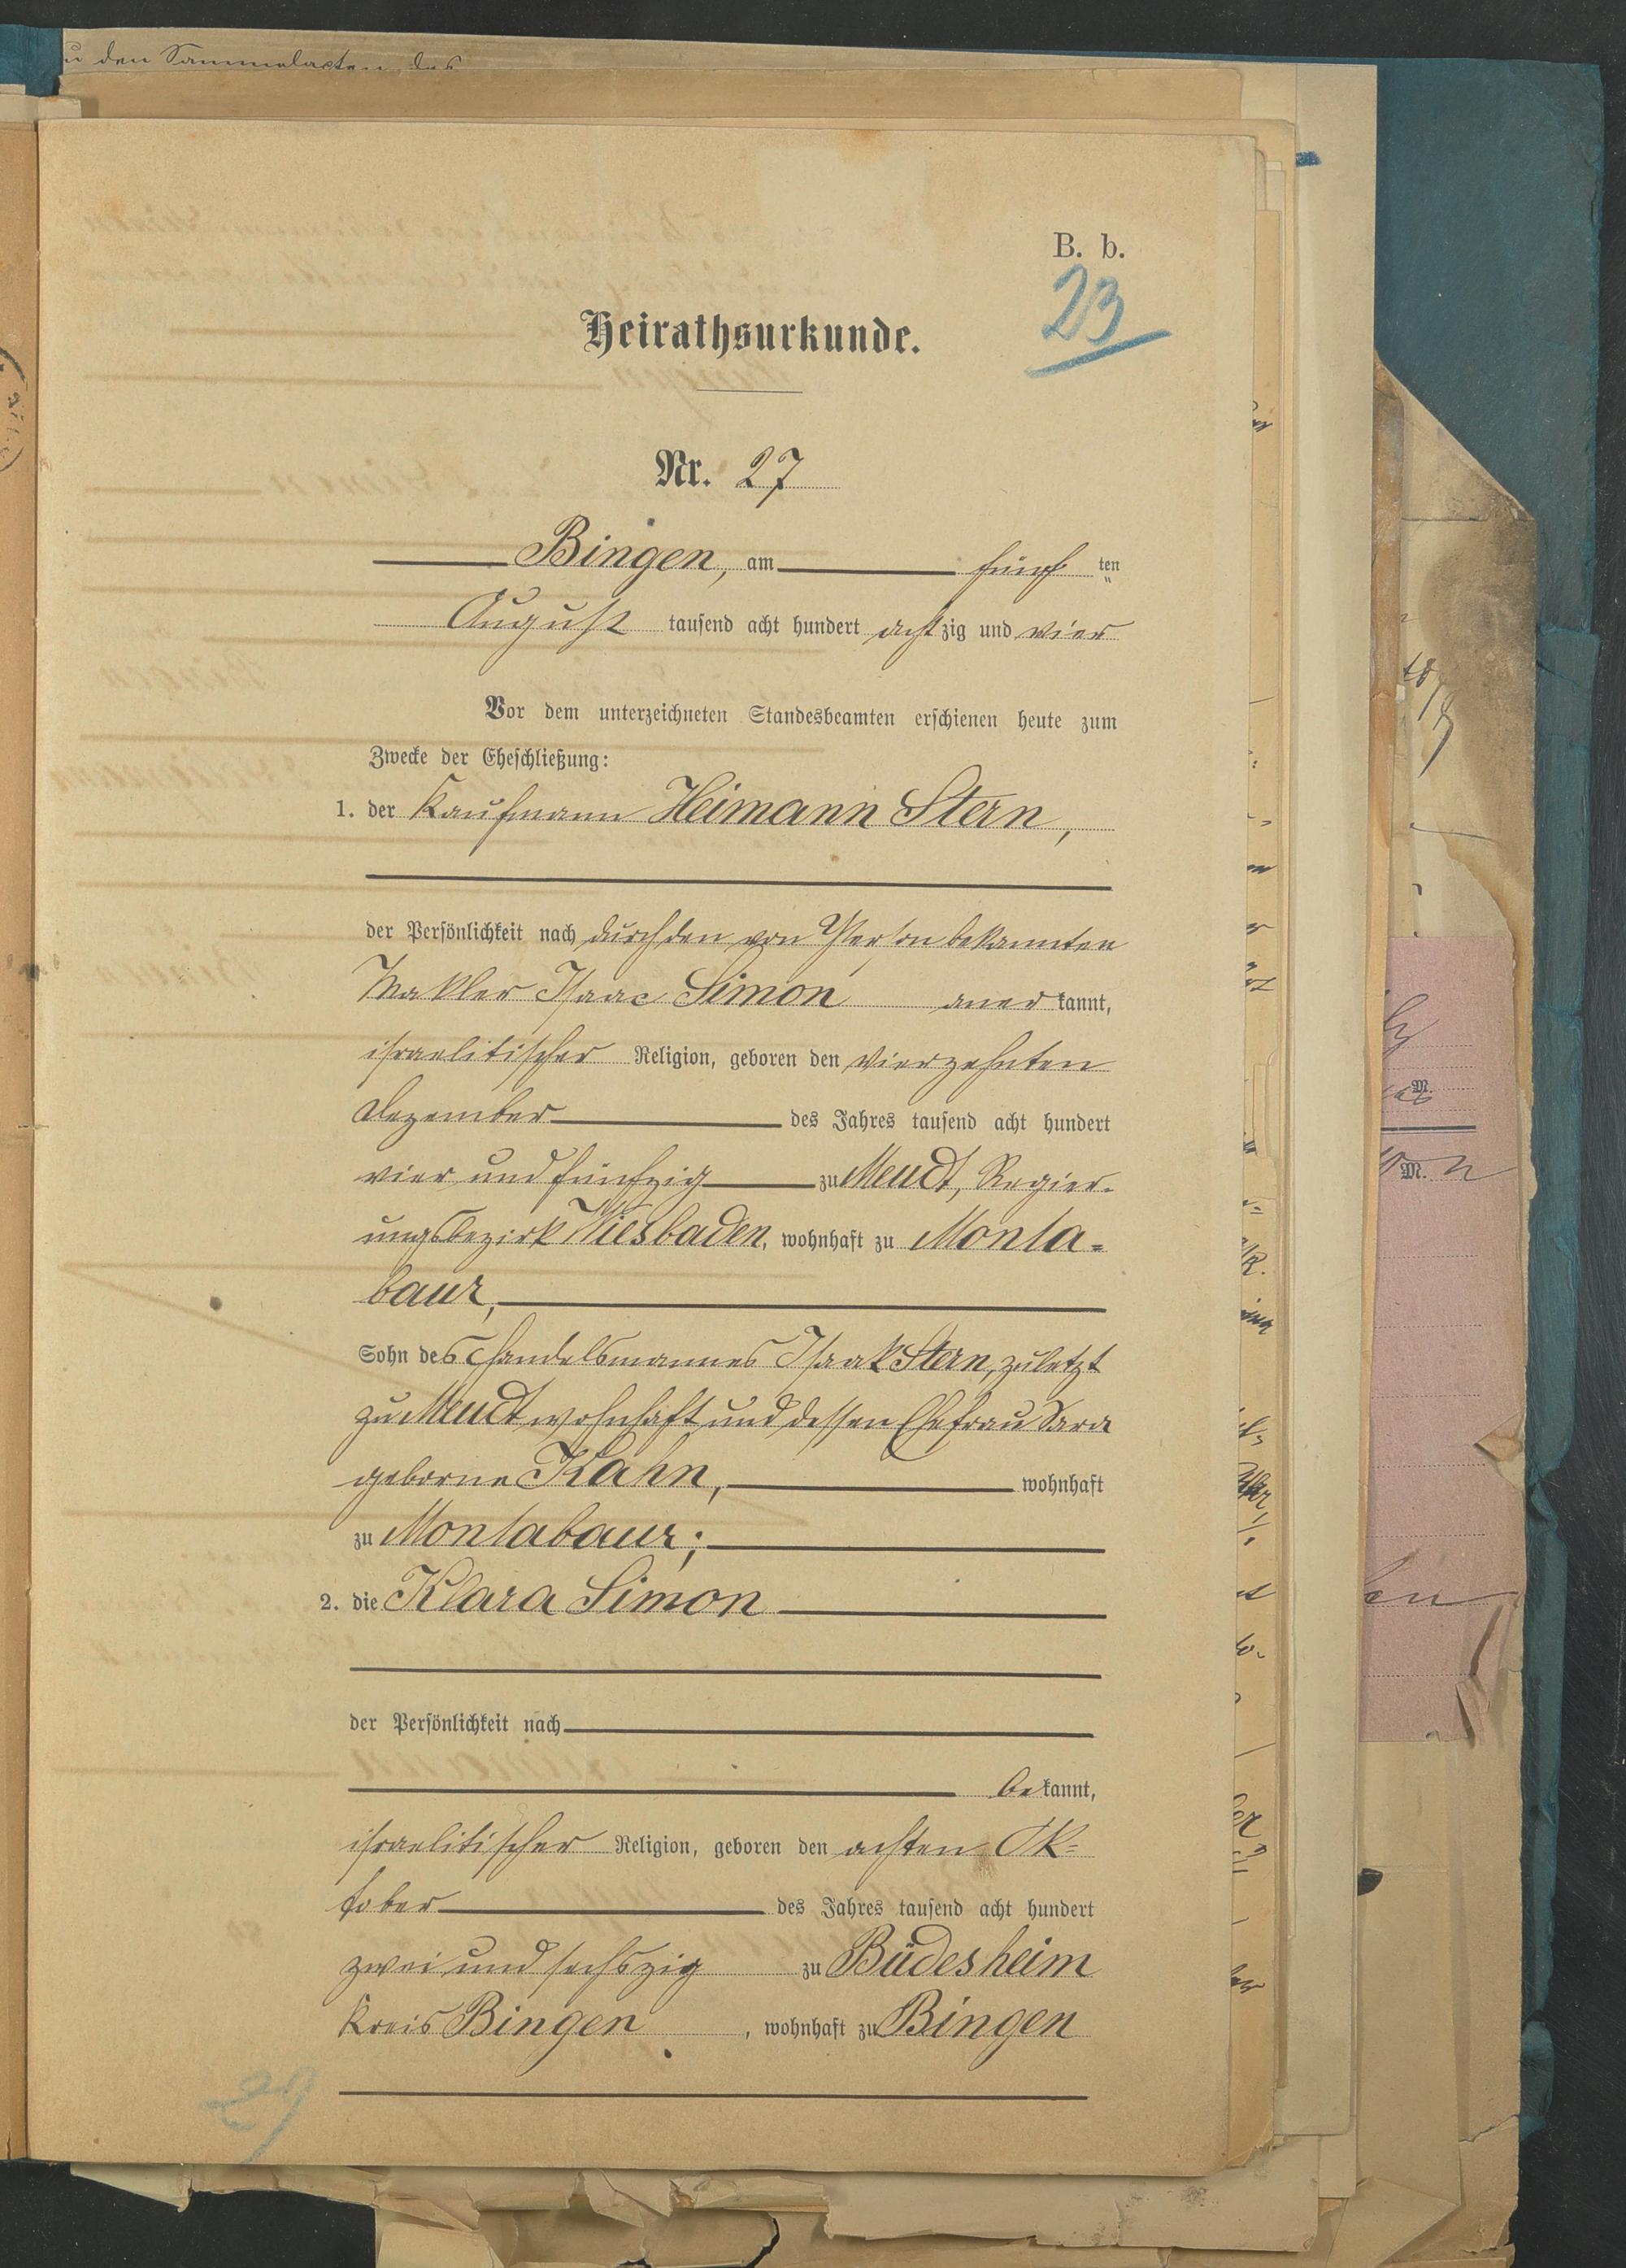 u den Sammelacten des
B. b.
23
Heirathsurkunde.
Nr. 27
Bingen, am fünf ten
August tausend acht hundert achtzig und vier
Vor dem unterzeichneten Standesbeamten erschienen heute zum
Zwecke der Eheschließung:
1. der Kaufmann Heimann Stern,
der Persönlichkeit nach durch den von Person bekannten
Makler Isaac Simon anerkannt,
israelitischer Religion, geboren den vierzehnten
Dezember des Jahres tausend acht hundert
vier und fünfzig zu Meudt, Regier-
ungsbezirk Wiesbaden, wohnhaft zu Monta=
baur,
Sohn des Handelsmannes Isaak Stern, zuletzt
zu Meudt wohnhaft und dessen Ehefrau Sara
geborne Kahn, wohnhaft
zu Montabaur;
2. die Klara Simon
der Persönlichkeit nach
bekannt,
israelitischer Religion, geboren den achten Ok=
tober des Jahres tausend acht hundert
zwei und sechszig zu Büdesheim
Kreis Bingen, wohnhaft zu Bingen
29